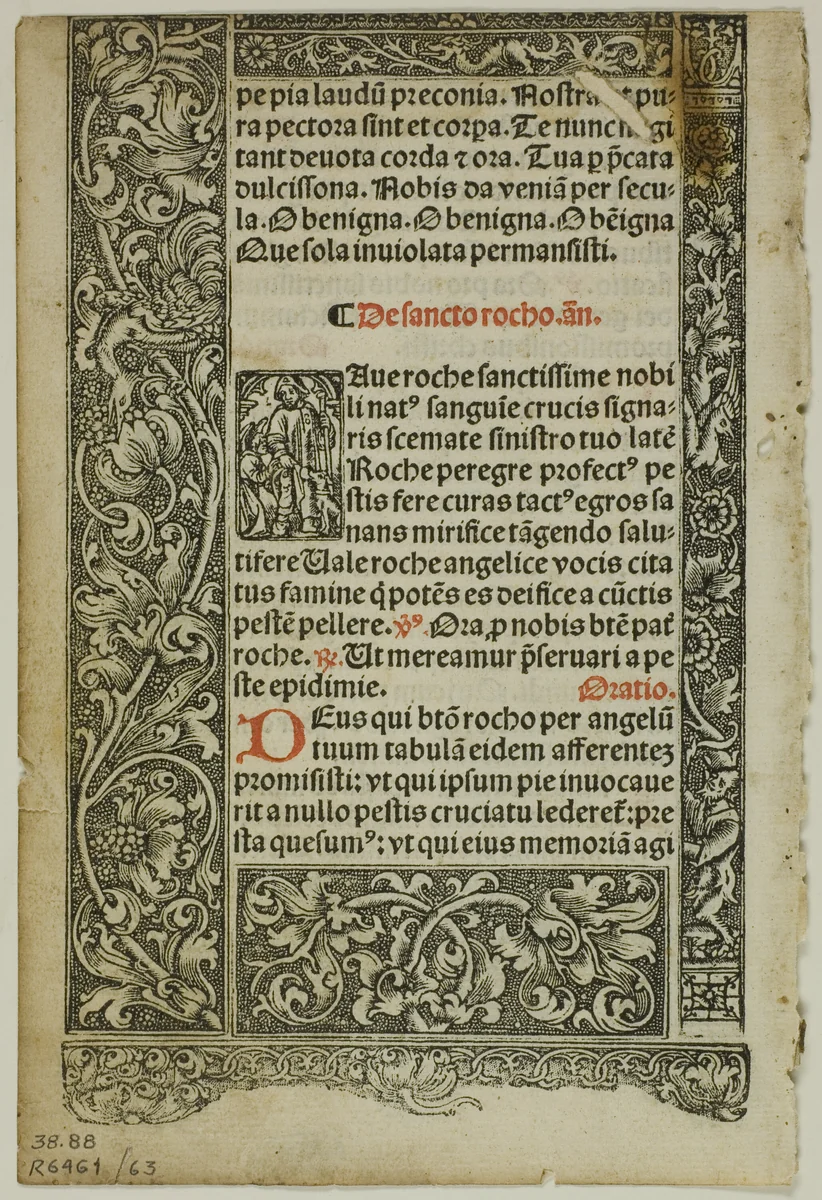 pe pia laudū preconia. Nostra ut pu⸗
ra pectora sint et corꝑa. Te nunc
tant deuota corda ⁊ ora. Tua ꝑ p̄cata
dulcissona. Nobis da veniā per secu⸗
la. O benigna. O benigna. O bēigna
Que sola inuiolata permansisti.
⸿ De sancto rocho. añ.
Aue roche sanctissime nobi
li natꝰ sanguīe crucis signa⸗
ris scemate sinistro tuo latē
Roche peregre profectꝰ pe
stis fere curas tactꝰ egros sa
nans mirifice tāgendo salu⸗
tifere Uale roche angelice vocis cita
tus famine q̇ potēs es deifice a cūctis
pestē pellere. ꝟꝰ. Ora ꝓ nobis btē pat̄
roche. ℞. Ut mereamur p̄seruari a pe
ste epidimie. Oratio.
DEus qui btō rocho per angelū
tuum tabulā eidem afferenteꝫ
promisisti: vt qui ipsum pie inuocaue
rit a nullo pestis cruciatu lederet̄: pre
sta quesumꝰ: vt qui eius memoriā agi
38.88
R6461/63